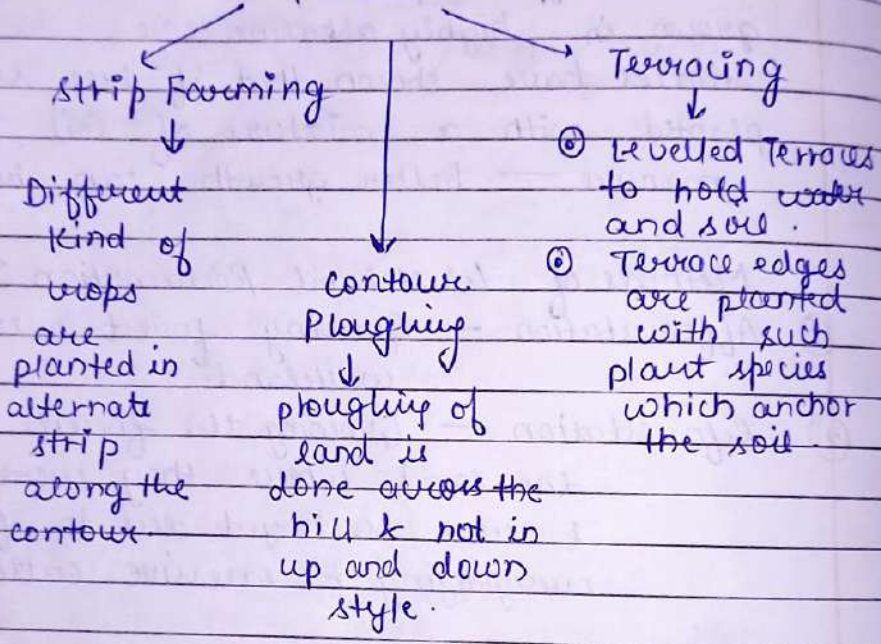 Strip Farming
Different
kind of
crops
are
planted in
alternate
strip
along the
contour.
Contour
Ploughing
ploughing of
land is
done across the
hill & not in
up and down
style.
Terracing
Levelled Terraces
to hold water
and soil.
Terrace edges
are planted
with such
plant species
which anchor
the soil.